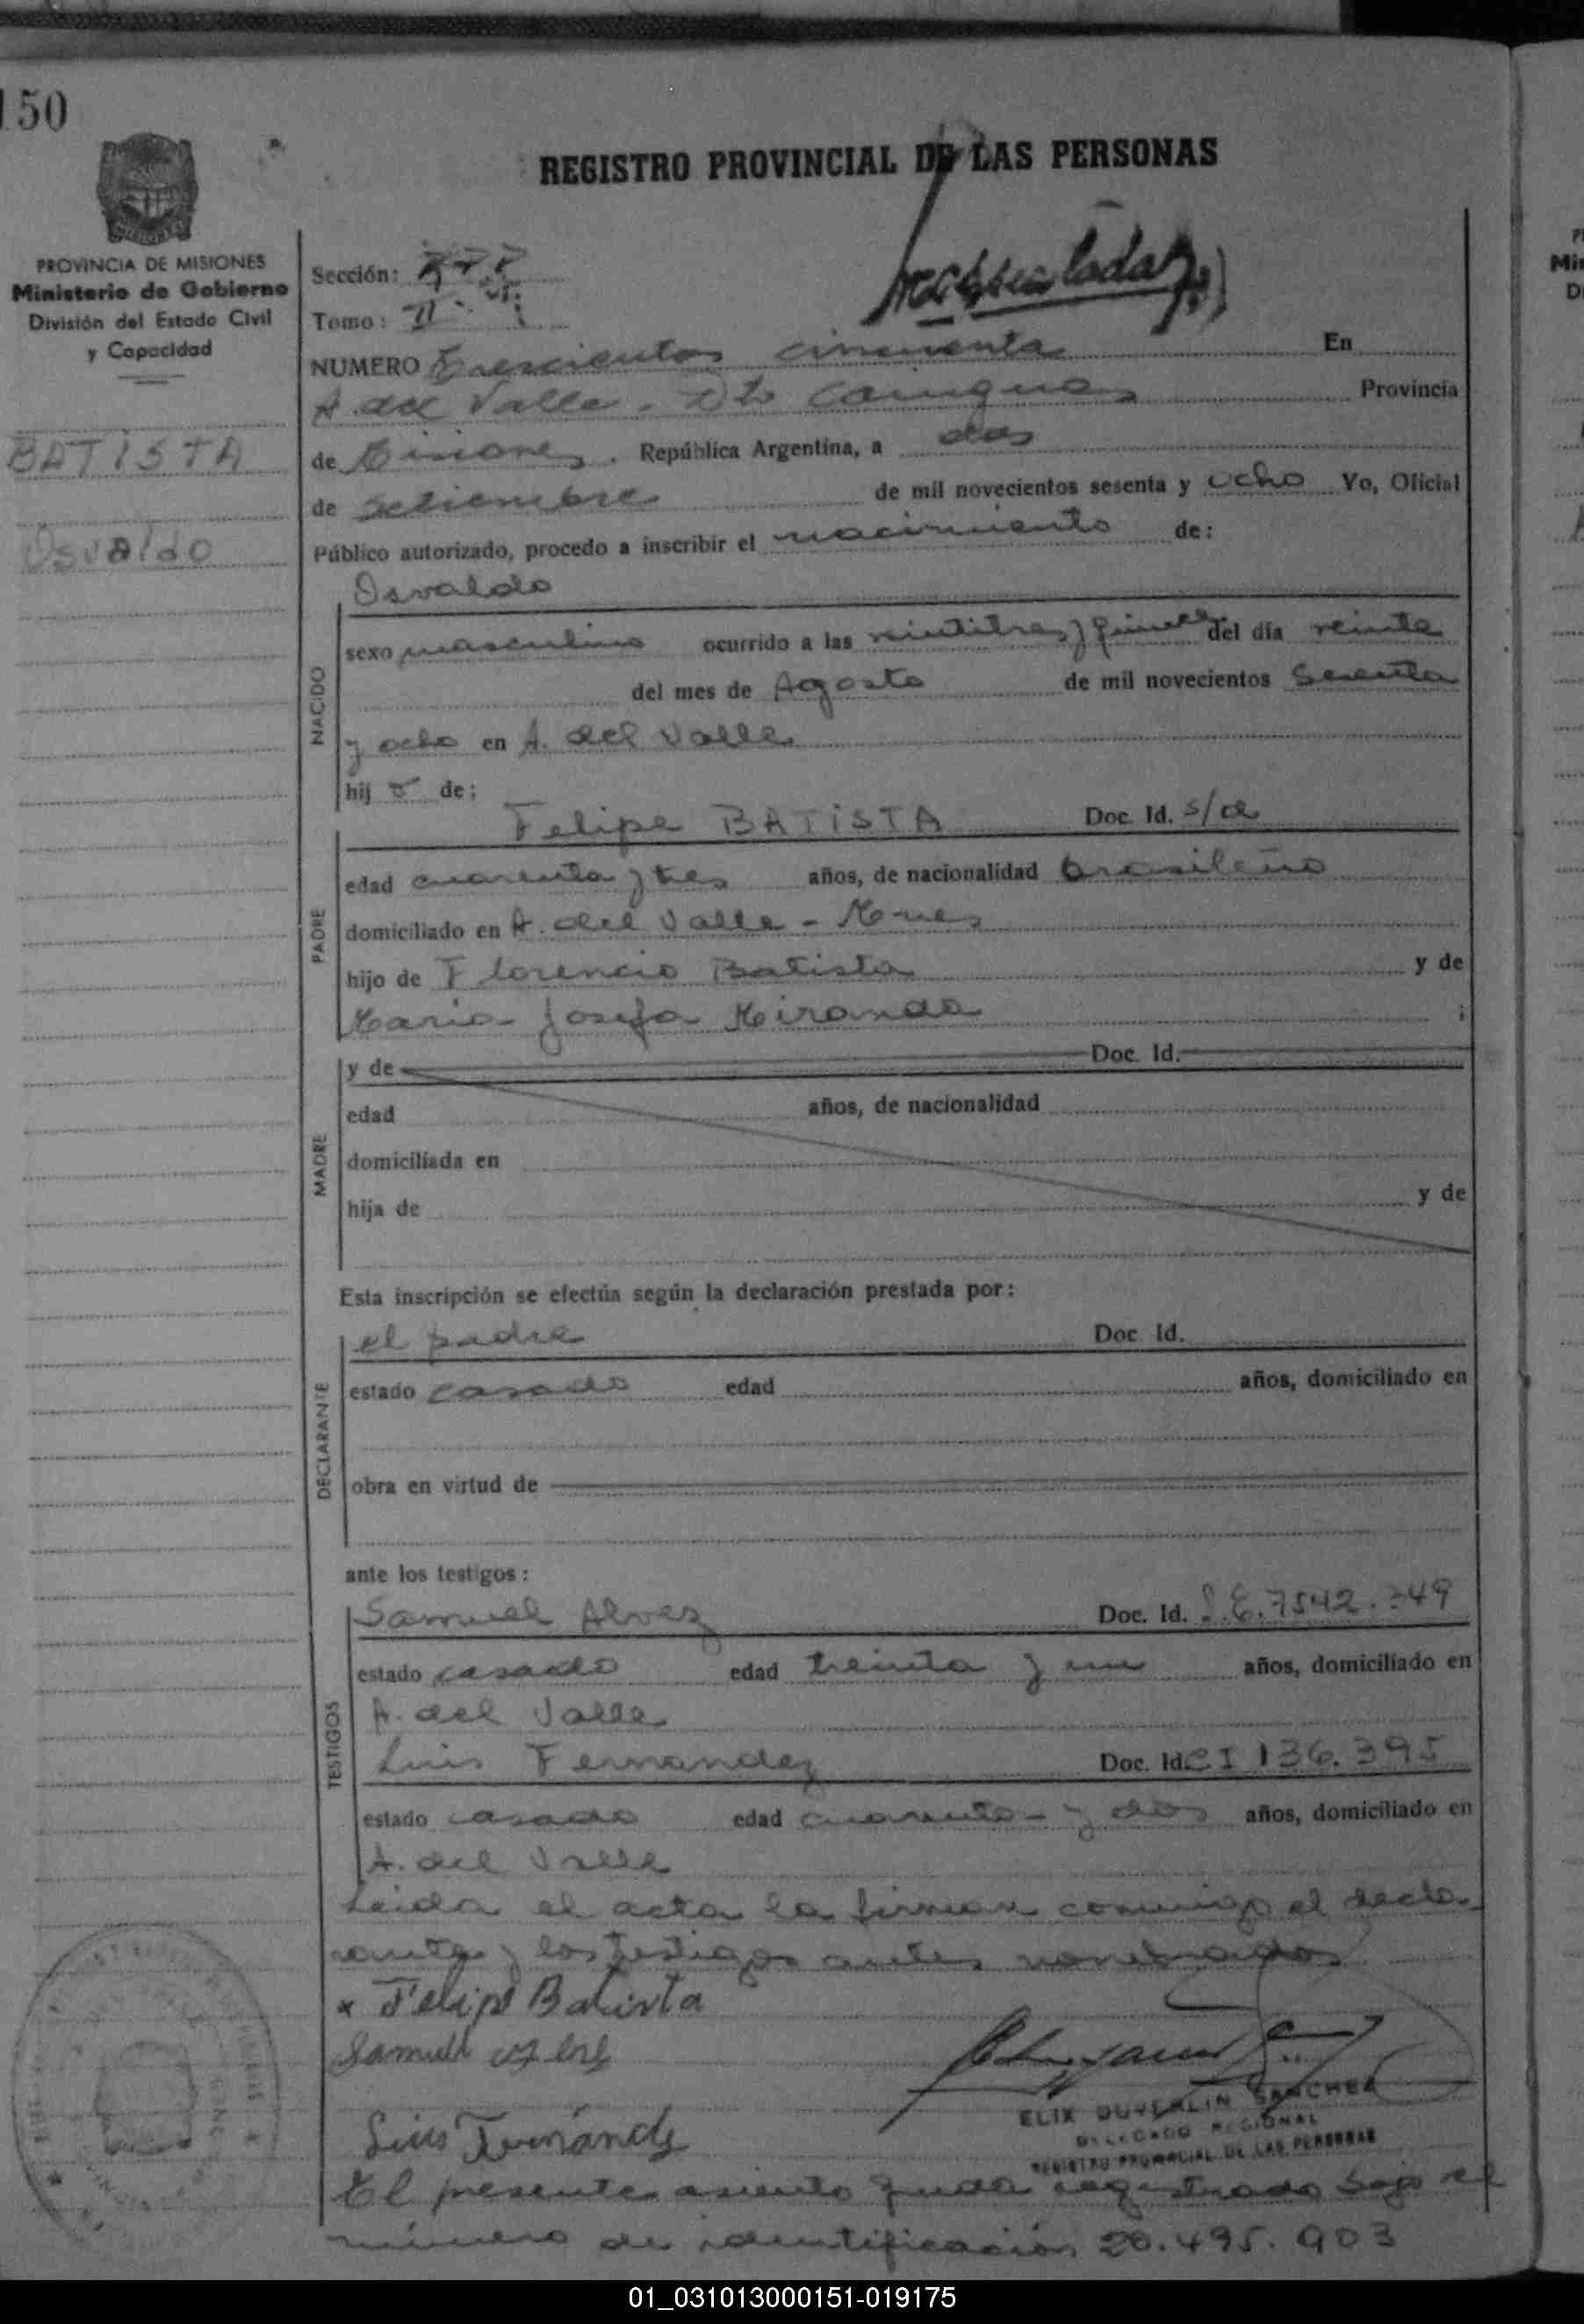 150
REGISTRO PROVINCIAL DE LAS PERSONAS
PROVINCIA DE MISIONES
Ministerio de Gobierno
División del Estado Civil
y Capacidad
Sección:
Tomo: II
NUMERO Trescientos cincuenta En
A. del Valle. Dto Cainguas Provincia
de Misiones. República Argentina, a dos
de Setiembre de mil novecientos sesenta y ocho Yo, Oficial
Público autorizado, procedo a inscribir el nacimiento de:
BATISTA
Osvaldo
Osvaldo
NACIDO
sexo masculino ocurrido a las veintitres y quince del día veinte
del mes de Agosto de mil novecientos Sesenta
y ocho en A. del Valle
hijo de:
PADRE
Felipe BATISTA Doc. Id. s/d
edad cuarenta y tres años, de nacionalidad brasileño
domiciliado en A. del Valle - Mnes
hijo de Florencio Batista y de
Maria Josefa Miranda ;
MADRE
y de Doc. Id.
edad años, de nacionalidad
domiciliada en
hija de y de
Esta inscripción se efectúa según la declaración prestada por:
DECLARANTE
el padre Doc. Id.
estado casado edad años, domiciliado en
obra en virtud de
ante los testigos:
TESTIGOS
Samuel Alvez Doc. Id. L.E. 7542.349
estado casado edad treinta y un años, domiciliado en
A. del Valle
Luis Fernandez Doc. Id. CI 136.395
estado casado edad cuarenta y dos años, domiciliado en
A. del Valle
Leida el acta la firman conmigo el decla
rante y los testigos antes nombrados
x Felipe Batista
Samuel
Luis Fernándz
ELIX DUVERLIN SANCHEZ
DELEGADO REGIONAL
REGISTRO PROVINCIAL DE LAS PERSONAS
El presente asiento queda registrado bajo el
número de identificación 20.495.903
01_031013000151-019175